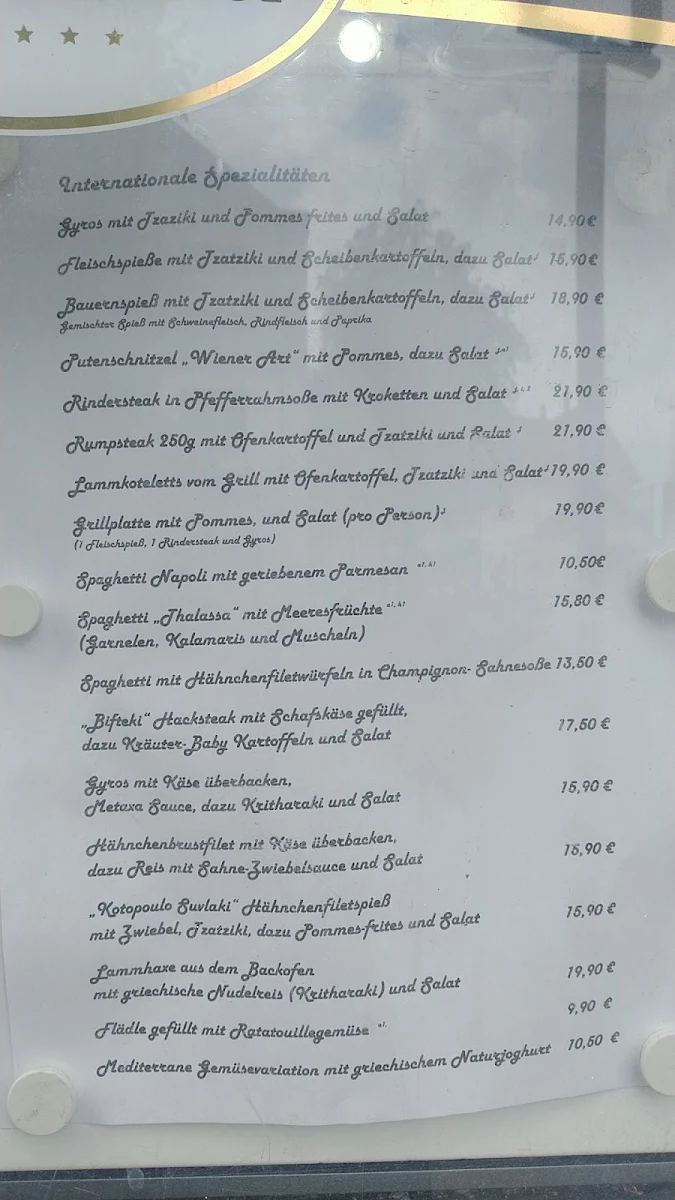 Internationale Spezialitäten
Gyros mit Tzaziki und Pommes frites und Salat 14,90 €
Fleischspieße mit Tzatziki und Scheibenkartoffeln, dazu Salat 15,90 €
Bauernspieß mit Tzatziki und Scheibenkartoffeln, dazu Salat 18,90 €
Gemischter Spieß mit Schweinefleisch, Rindfleisch und Paprika
Putenschnitzel „Wiener Art“ mit Pommes, dazu Salat 15,90 €
Rindersteak in Pfefferrahmsoße mit Kroketten und Salat 21,90 €
Rumpsteak 250g mit Ofenkartoffel und Tzatziki und Salat 21,90 €
Lammkoteletts vom Grill mit Ofenkartoffel, Tzatziki und Salat 19,90 €
Grillplatte mit Pommes, und Salat (pro Person) 19,90 €
(1 Fleischspieß, 1 Rindersteak und Gyros)
Spaghetti Napoli mit geriebenem Parmesan 10,50€
Spaghetti „Thalassa“ mit Meeresfrüchte 15,80 €
(Garnelen, Kalamaris und Muscheln)
Spaghetti mit Hähnchenfiletwürfeln in Champignon- Sahnesoße 13,50 €
„Bifteki“ Hacksteak mit Schafskäse gefüllt, 17,50 €
dazu Kräuter-Baby Kartoffeln und Salat
Gyros mit Käse überbacken, 15,90 €
Metaxa Sauce, dazu Kritharaki und Salat
Hähnchenbrustfilet mit Käse überbacken, 15,90 €
dazu Reis mit Sahne-Zwiebelsauce und Salat
„Kotopoulo Suvlaki“ Hähnchenfiletspieß 15,90 €
mit Zwiebel, Tzatziki, dazu Pommes-frites und Salat
Lammhaxe aus dem Backofen 19,90 €
mit griechische Nudelreis (Kritharaki) und Salat
Flädle gefüllt mit Ratatouillegemüse 9,90 €
Mediterrane Gemüsevariation mit griechischem Naturjoghurt 10,50 €